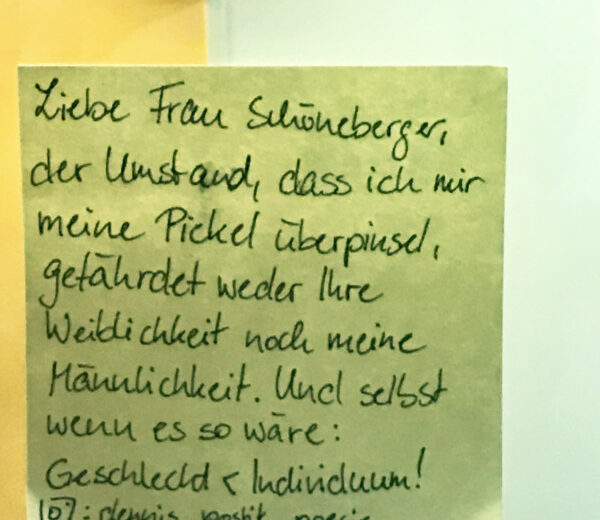 Liebe Frau Schöneberger,
der Umstand, dass ich mir
meine Pickel überpinsel,
gefährdet weder Ihre
Weiblichkeit noch meine
Männlichkeit. Und selbst
wenn es so wäre:
Geschlecht < Individuum!
dennis_postit_poesie